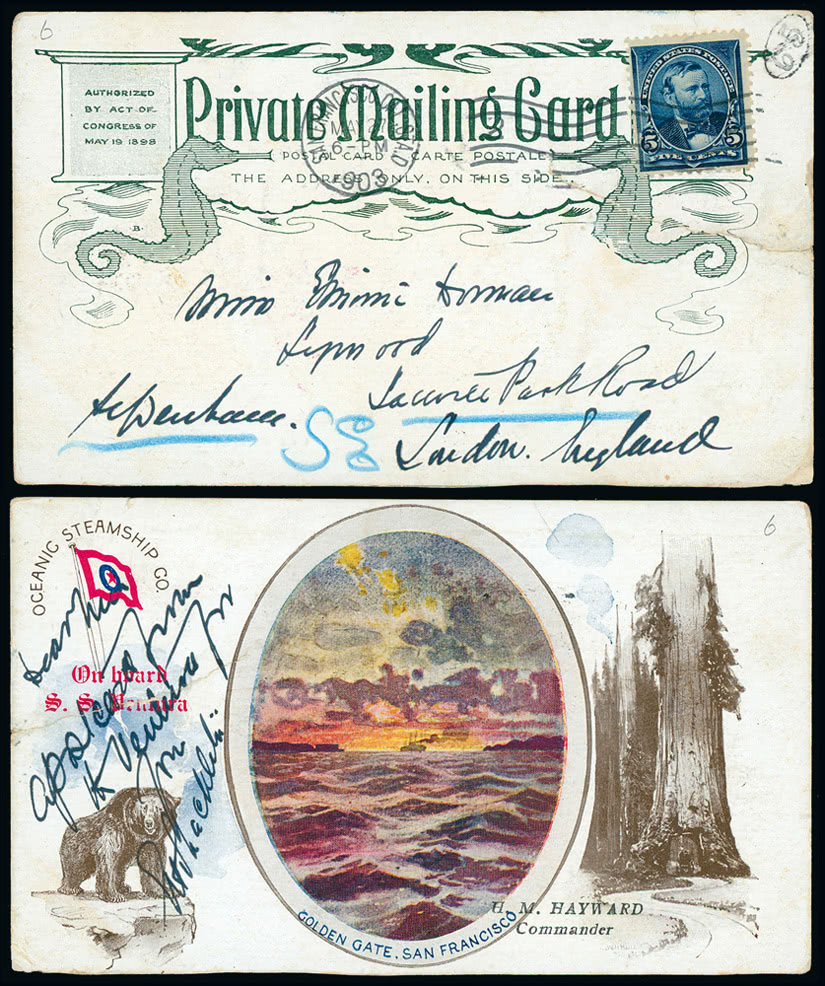 6
AUTHORIZED
BY ACT OF
CONGRESS OF
MAY 19 1898
Private Mailing Card
(POSTAL CARD — CARTE POSTALE)
THE ADDRESS ONLY, ON THIS SIDE.
SAN FRANCISCO CAL. STA. D
MAY
6-PM
1903
3
UNITED STATES POSTAGE
5 5
FIVE CENTS
B.
Miss
Road
Sydenham.
SE
London. England
6
OCEANIC STEAMSHIP CO.
On board
S. S. Ventura
a postcard from
Ventura for
GOLDEN GATE, SAN FRANCISCO
H. M. HAYWARD
Commander